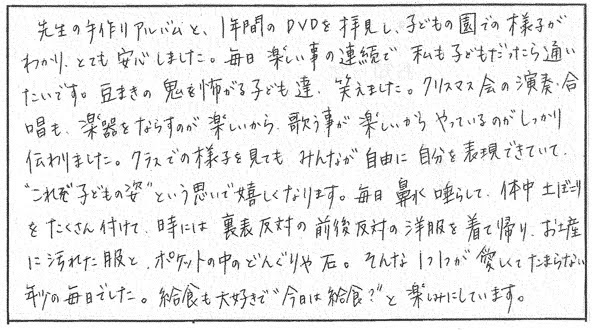 先生の手作りアルバムと、1年間のDVDを拝見し、子どもの園での様子が
わかり、とても安心しました。毎日楽しい事の連続で 私も子どもだったら通い
たいです。豆まきの鬼を怖がる子ども達、笑えました。クリスマス会の演奏・合
唱も、楽器をならすのが楽しいから、歌う事が楽しいからやっているのがしっかり
伝わりました。クラスでの様子を見ても みんなが自由に自分を表現できていて、
"これぞ子どもの姿"という思いで嬉しくなります。毎日鼻水唾らして、体中土ぼこり
をたくさん付けて、時には裏表反対の前後反対の洋服を着て帰り、お土産
に汚れた服と、ポケットの中のどんぐりや石。そんな1つ1つが愛しくてたまらない
年少の毎日でした。給食も大好きで"今日は給食?"と楽しみにしています。